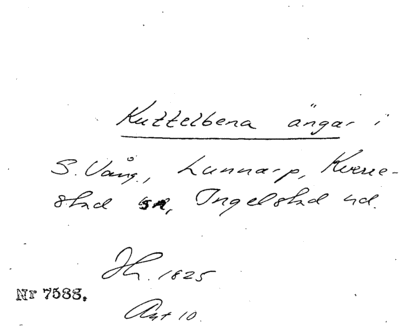 Kuttelbena ängar i
S. Vång., Lunnarp, Kverre-
stad sn, Ingelstad hd.
Jh. 1825
Nr 7588.
Akt 10.